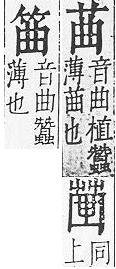 䒼
音曲植蠶
薄䒼也
同
上
𥬔
音曲蠶
薄也